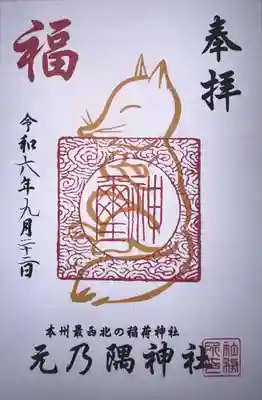 奉拝
福
令和六年九月二十三日
本州最西北の稲荷神社
元乃隅神社